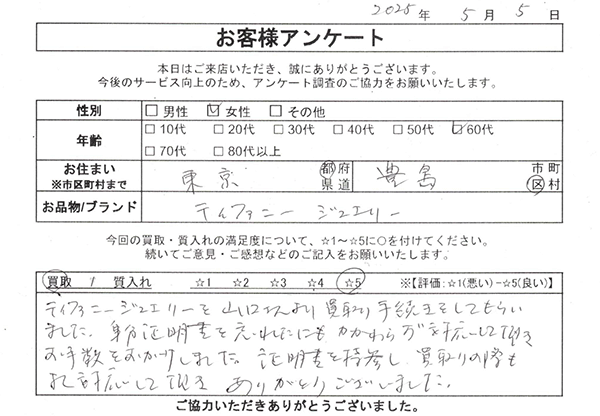 2025年 5月 5日
お客様アンケート
本日はご来店いただき、誠にありがとうございます。
今後のサービス向上のため、アンケート調査のご協力をお願いいたします。
性別 □男性 ☑女性 □その他
年齢 □10代 □20代 □30代 □40代 □50代 ☑60代
□70代 □80代以上
お住まい ※市区町村まで 東京 都府県道 豊島 市町区村
お品物/ブランド ティファニー ジュエリー
今回の買取・質入れの満足度について、☆1～☆5に○を付けてください。
続いてご意見・ご感想などのご記入をお願いいたします。
買取 / 質入れ ☆1 ☆2 ☆3 ☆4 ☆5 ※【評価:☆1(悪い)-☆5(良い)】
ティファニージュエリーを山口さんより買取り手続きをしてもらい
ました。身分証明書を忘れたにもかかわらず対応して頂き
お手数をおかけしました。証明書を持参し、買取りの際も
よく対応して頂き ありがとうございました。
ご協力いただきありがとうございました。